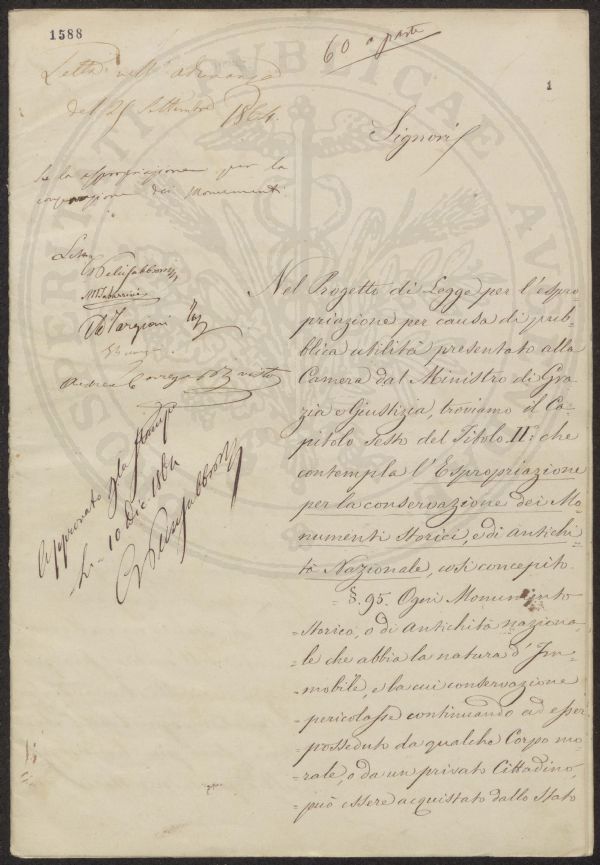 1588
60 a parte
1
Letta nell' adunanza
del 25 Settembre 1864.
Signori
Se la espropriazione per la
conservazione dei Monumenti
Nel Progetto di Legge per l'espro-
priazione per causa di pub-
blica utilità presentato alla
Camera dal Ministro di Gra-
zia e Giustizia, troviamo il Ca-
pitolo Sesto del Titolo II° che
contempla l'Espropriazione
per la conservazione dei Mo-
numenti Storici, e di Antichi-
tà Nazionale, così concepito.
= §. 95. Ogni Monumento
= Storico, o di Antichità naziona-
= le che abbia la natura d'Im-
= mobile, e la cui conservazione
= pericolasse continuando ad esser
= posseduto da qualche Corpo mo-
= rale, o da un privato Cittadino,
= può essere acquistato dallo Stato
Approvato per la stampa
Li 10 Dic. 1864